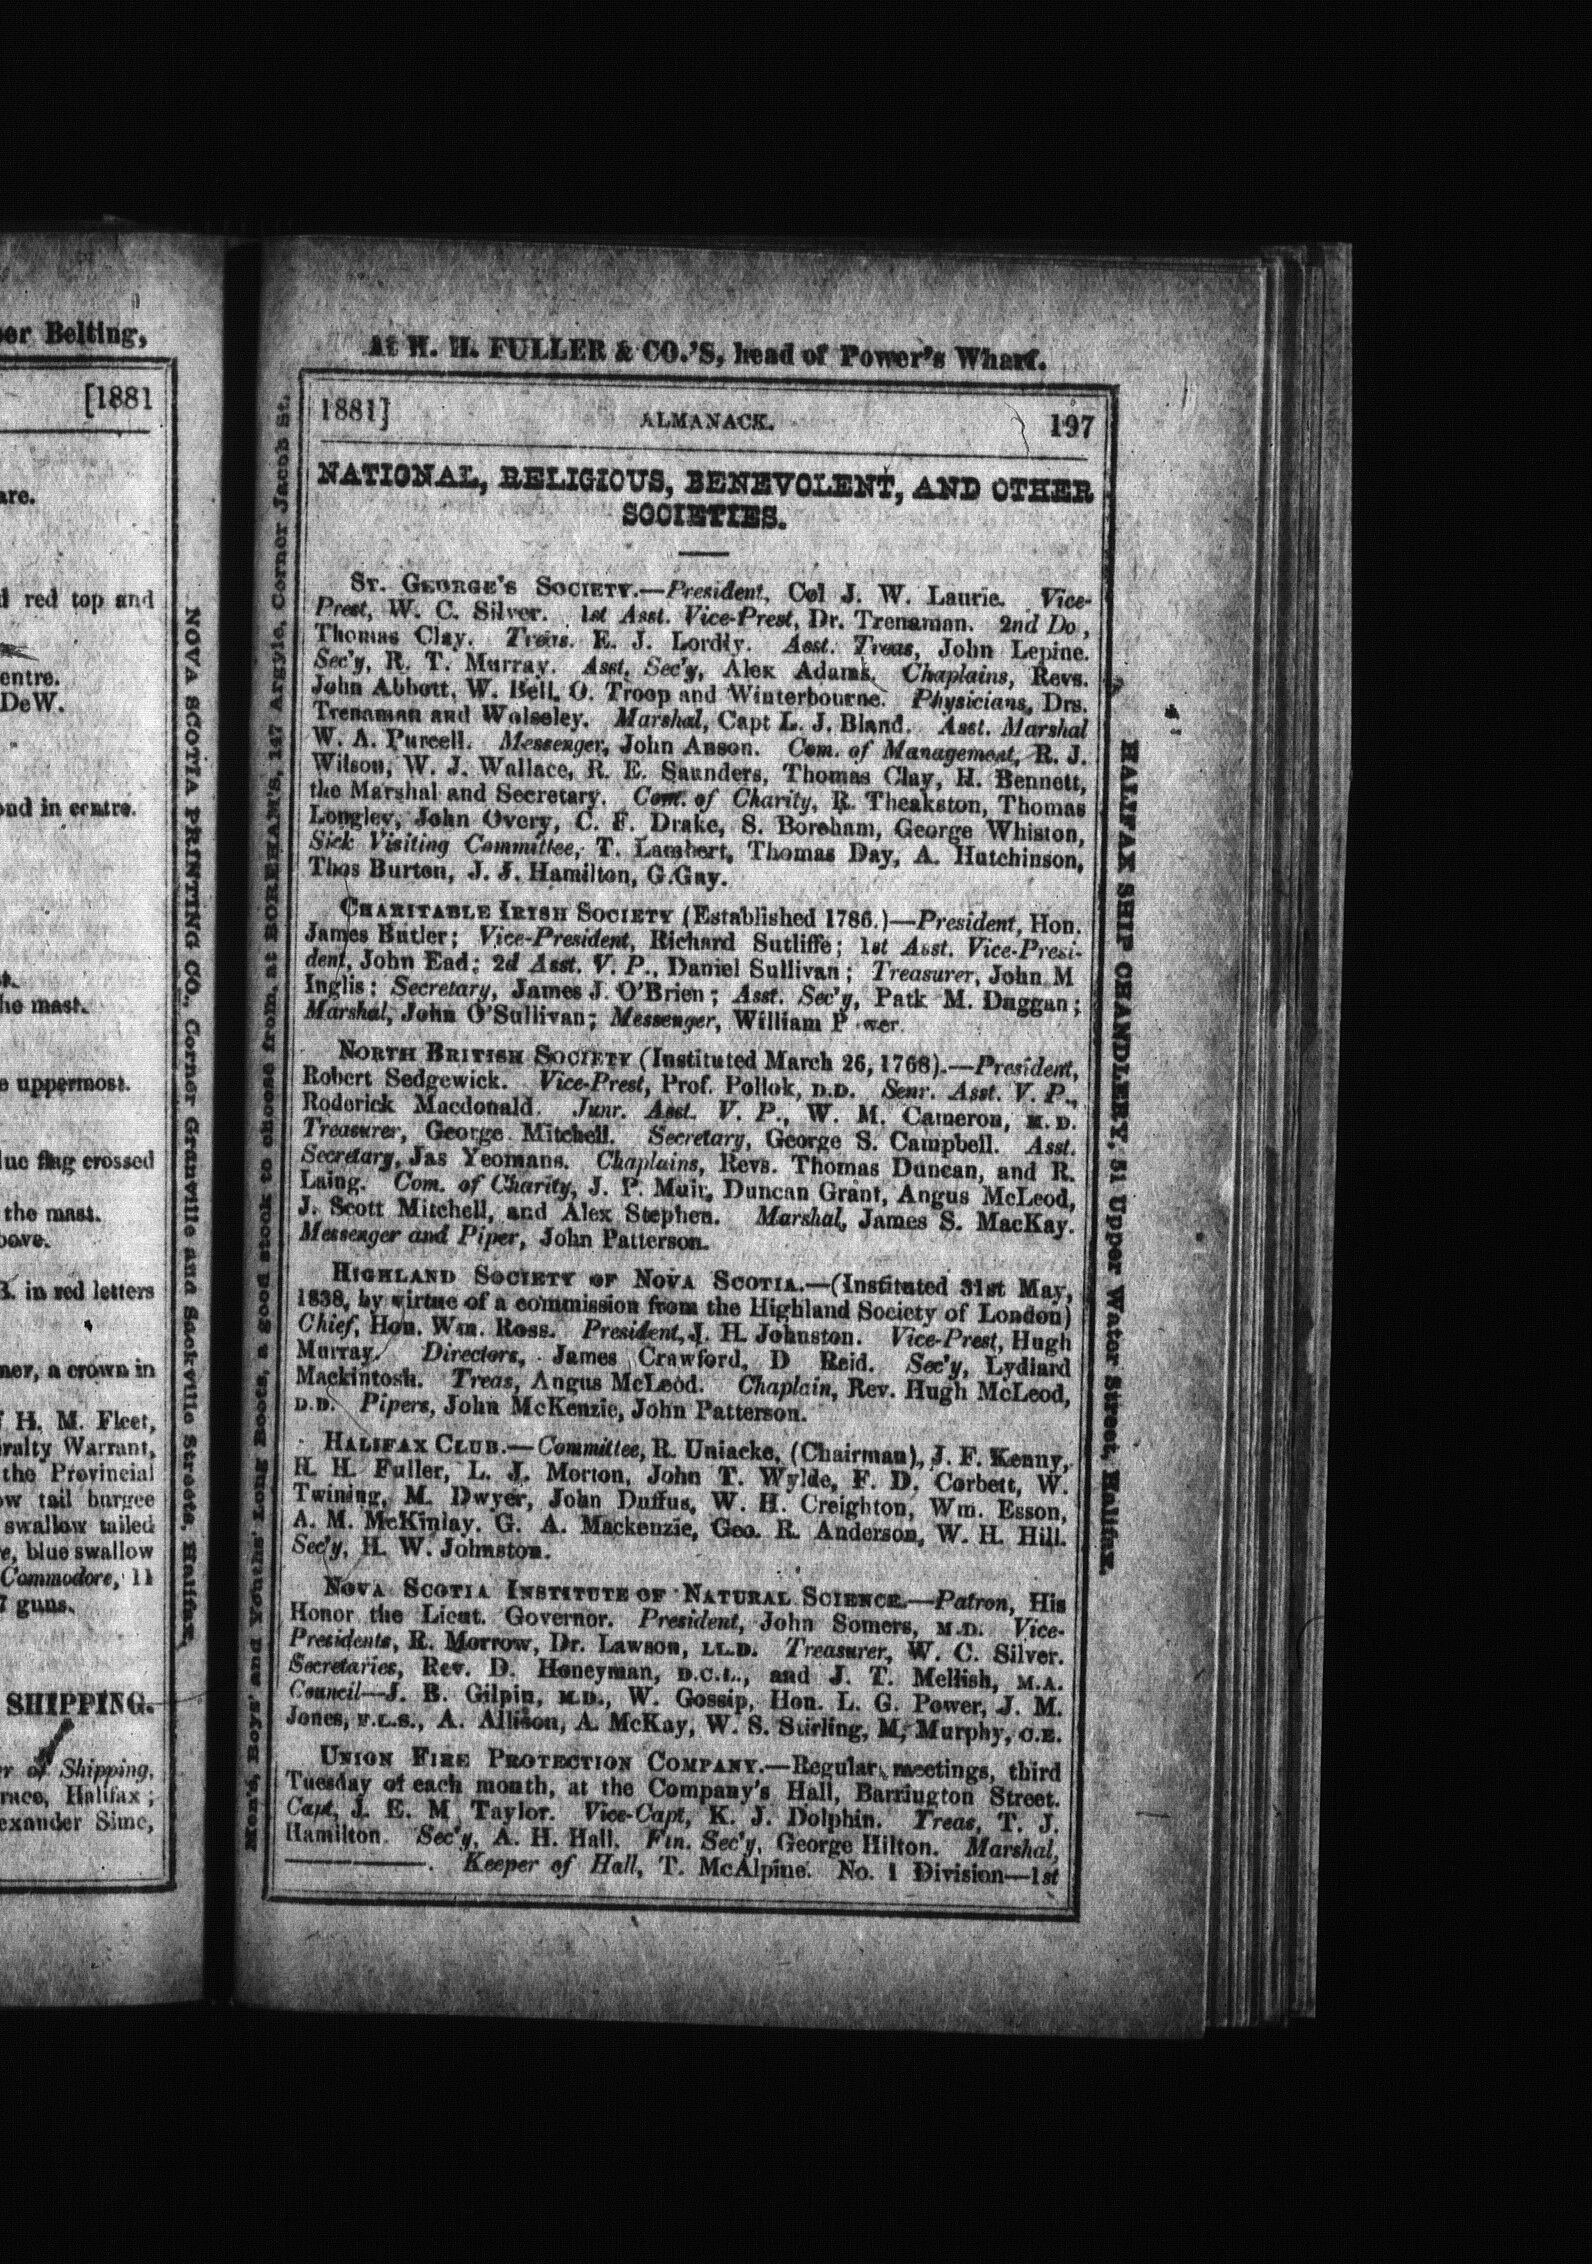 er Belting,
[1881
are.
d red top and
entre.
DeW.
ond in centre.
he mast.
e uppermost.
flag crossed
the mast.
bove.
B. in red letters
ner, a crown in
H. M. Fleet,
ralty Warrant,
the Provincial
ow tail burgee
swallow tailed
e, blue swallow
Commodore, 11
7 guns.
SHIPPING.
r of Shipping,
rrace, Halifax;
exander Sime,
NOVA SCOTIA PRINTING CO., Corner Granville and Sackville Streets, Halifax.
Men's, Boys' and Youths' Long Boots, a good stock to choose from, at BOREHAM'S, 147 Argyle, Corner Jacob St.
At H. H. FULLER & CO.'S, head of Power's Wharf.
1881] ALMANACK. 197
NATIONAL, RELIGIOUS, BENEVOLENT, AND OTHER
SOCIETIES.
ST. GEORGE'S SOCIETY.—President, Col J. W. Laurie. Vice-
Prest, W. C. Silver. 1st Asst. Vice-Prest, Dr. Trenaman. 2nd Do,
Thomas Clay. Treas. E. J. Lordly. Asst. Treas, John Lepine.
Sec'y, R. T. Murray. Asst. Sec'y, Alex Adams. Chaplains, Revs.
John Abbott, W. Bell, O. Troop and Winterbourne. Physicians, Drs.
Trenaman and Wolseley. Marshal, Capt L. J. Bland. Asst. Marshal
W. A. Purcell. Messenger, John Anson. Com. of Management, R. J.
Wilson, W. J. Wallace, R. E. Saunders, Thomas Clay, H. Bennett,
the Marshal and Secretary. Com. of Charity, R. Theakston, Thomas
Longley, John Overy, C. F. Drake, S. Boreham, George Whiston,
Sick Visiting Committee, T. Lambert, Thomas Day, A. Hutchinson,
Thos Burton, J. J. Hamilton, G. Gay.
CHARITABLE IRISH SOCIETY (Established 1786.)—President, Hon.
James Butler; Vice-President, Richard Sutliffe; 1st Asst. Vice-Presi-
dent, John Ead; 2d Asst. V. P., Daniel Sullivan; Treasurer, John M
Inglis; Secretary, James J. O'Brien; Asst. Sec'y, Patk M. Duggan;
Marshal, John O'Sullivan; Messenger, William P wer.
NORTH BRITISH SOCIETY (Instituted March 26, 1768).—President,
Robert Sedgewick. Vice-Prest, Prof. Pollok, D.D. Senr. Asst. V. P.,
Roderick Macdonald. Junr. Asst. V. P., W. M. Cameron, M. D.
Treasurer, George Mitchell. Secretary, George S. Campbell. Asst.
Secretary, Jas Yeomans. Chaplains, Revs. Thomas Duncan, and R.
Laing. Com. of Charity, J. P. Muir, Duncan Grant, Angus McLeod,
J. Scott Mitchell, and Alex Stephen. Marshal, James S. MacKay.
Messenger and Piper, John Patterson.
HIGHLAND SOCIETY OF NOVA SCOTIA.—(Instituted 31st May,
1838, by virtue of a commission from the Highland Society of London)
Chief, Hon. Wm. Ross. President, J. H. Johnston. Vice-Prest, Hugh
Murray. Directors, James Crawford, D Reid. Sec'y, Lydiard
Mackintosh. Treas, Angus McLeod. Chaplain, Rev. Hugh McLeod,
D.D. Pipers, John McKenzie, John Patterson.
HALIFAX CLUB.—Committee, R. Uniacke, (Chairman), J. F. Kenny,
H. H. Fuller, L. J. Morton, John T. Wylde, F. D. Corbett, W.
Twining, M. Dwyer, John Duffus, W. H. Creighton, Wm. Esson,
A. M. McKinlay. G. A. Mackenzie, Geo. R. Anderson, W. H. Hill.
Sec'y, H. W. Johnston.
NOVA SCOTIA INSTITUTE OF NATURAL SCIENCE.—Patron, His
Honor the Lieut. Governor. President, John Somers, M.D. Vice-
Presidents, R. Morrow, Dr. Lawson, LL.D. Treasurer, W. C. Silver.
Secretaries, Rev. D. Honeyman, D.C.L., and J. T. Mellish, M.A.
Council—J. B. Gilpin, M.D., W. Gossip, Hon. L. G. Power, J. M.
Jones, F.L.S., A. Allison, A. McKay, W. S. Stirling, M, Murphy, C.E.
UNION FIRE PROTECTION COMPANY.—Regular meetings, third
Tuesday of each month, at the Company's Hall, Barrington Street.
Capt, J. E. M Taylor. Vice-Capt, K. J. Dolphin. Treas, T. J.
Hamilton. Sec'y, A. H. Hall. Fin. Sec'y, George Hilton. Marshal,
————. Keeper of Hall, T. McAlpine. No. 1 Division—1st
HALIFAX SHIP CHANDLERY, 51 Upper Water Street, Halifax.